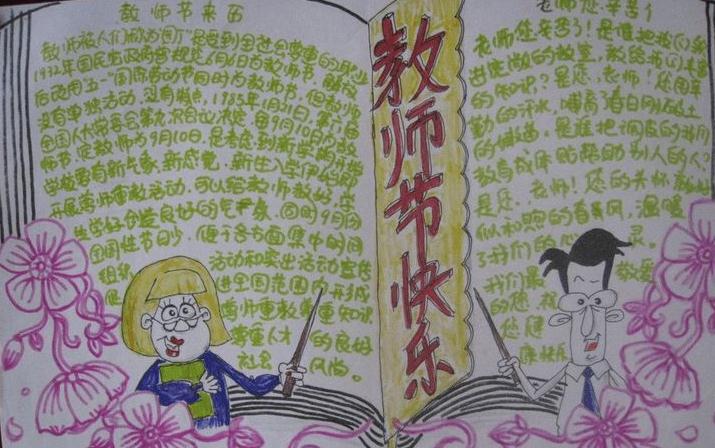 教师节来历
教师被人们称为园丁是受到全社会尊重的
1932年国民党政府曾规定6月6日为教师节，解放
后改用五一国际劳动节同时为教师节，但教师
没有单独活动，没有特点，1985年1月21日，第六届
全国人大常委会第九次会议决定，每9月10日为教
师节。定教师为9月10日，是考虑到新学期开学
学校要有新气象，新感觉，新生入学伊始即
开展尊师重教活动，可以给教师教好，学
生学好创造良好的气象，同时9月份
全国性节日少，便于各方面集中时间
组织
活动和突出活动宣传
促
进全国范围内形成
尊师重教尊重知识
尊重人才
的良好
社会
风尚。
教师节快乐
老师您辛苦了
老师您辛苦了！是谁把我们
进宽敞的教室，教给我们
的知识？是您，老师！您用
勤的汗水，哺育了春日刚破土
的嫩苗，是谁把调皮的我们
教育成体贴帮助别人的人？
是您，老师！您的关怀
似和煦的春风，温暖
了我们的
灵。
我们最
敬爱
的您，祝
您健
康快乐